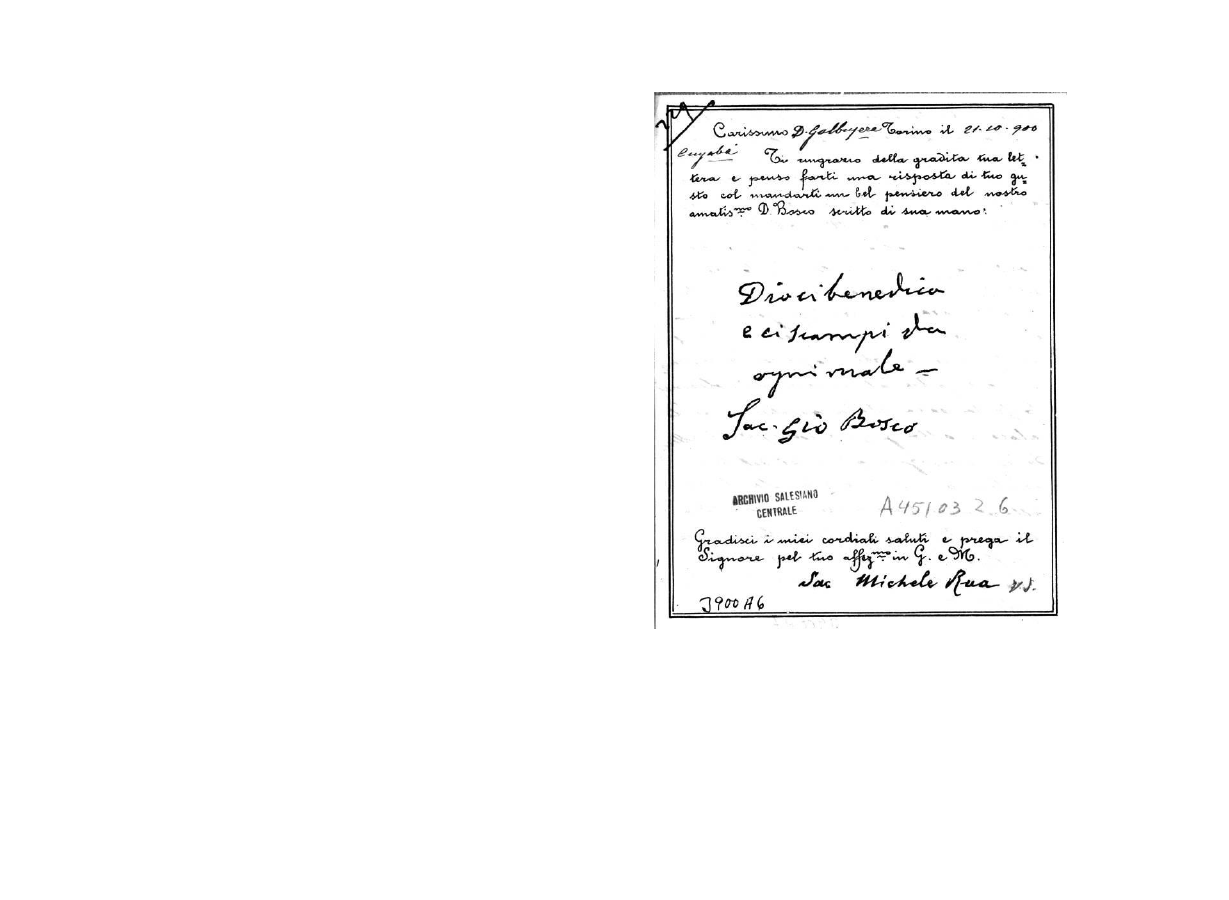 Carissimo D. Galbusera Torino il 21-10-900
Cuyabá Ti ringrazio della gradita tua let-
tera e penso farti una risposta di tuo gu-
sto col mandarti un bel pensiero del nostro
amatis.mo D. Bosco scritto di sua mano:
Dio ci benedica
e ci scampi da
ogni male -
Sac. Gio Bosco
ARCHIVIO SALESIANO
CENTRALE
A4510326
Gradisci i miei cordiali saluti e prega il
Signore pel tuo affez.mo in G. e M.
Sac Michele Rua
J900A6